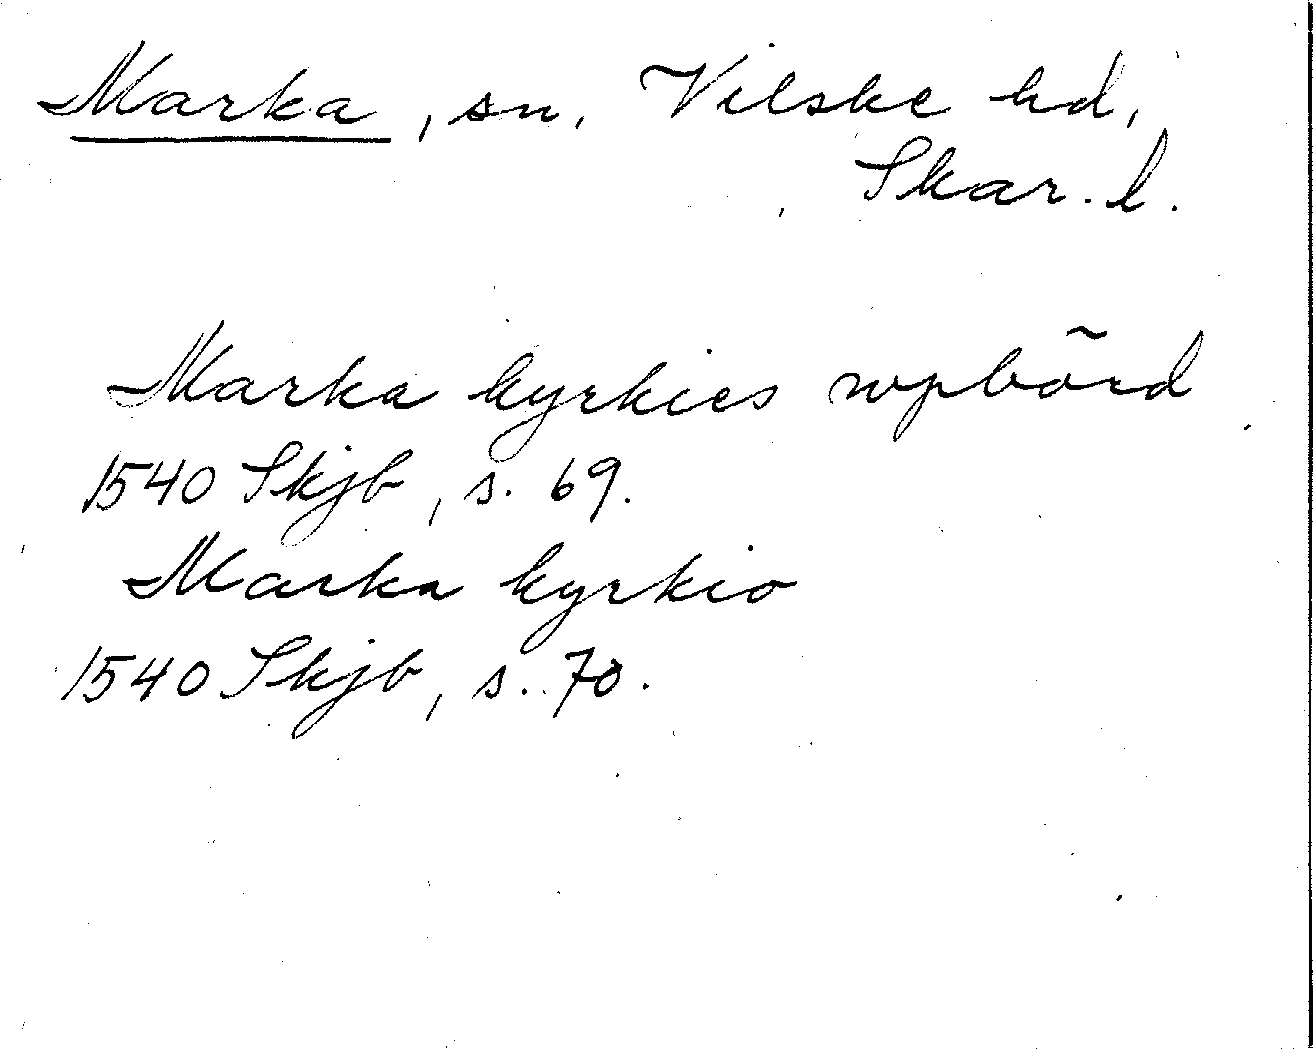 Marka, sn, Vilske hd,
Skar. l.
Marka kyrkies wpbörd
1540 Skjb, s. 69.
Marka kyrkio
1540 Skjb, s. 70.